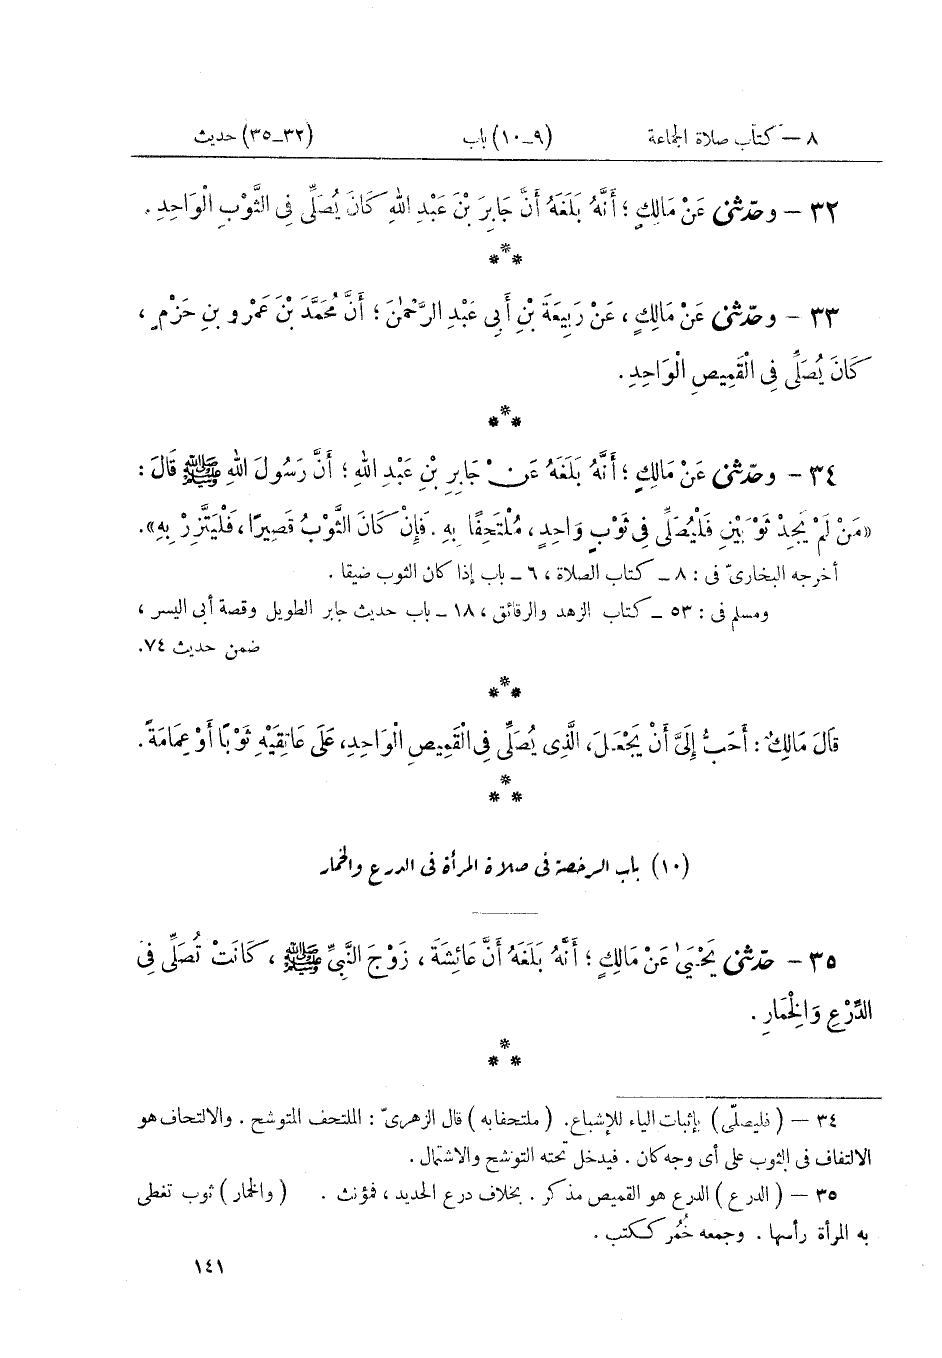 ٨ – كتاب صلاة الجماعة (٩–١٠) باب (٣٢–٣٥) حديث
٣٢ – وحدّثنى عَنْ مَالِكٍ ؛ أَنَّهُ بَلَغَهُ أَنَّ جَابِرَ بْنَ عَبْدِ اللهِ كَانَ يُصَلِّى فِى الثَّوْبِ الْوَاحِدِ .
***
٣٣ – وحدّثنى عَنْ مَالِكٍ ، عَنْ رَبِيعَةَ بْنِ أَبِى عَبْدِ الرَّحْمٰنَ ؛ أَنَّ مُحَمَّدَ بْنَ عَمْرِو بنِ حَزْمٍ ،
كَانَ يُصَلِّى فِى الْقَمِيصِ الْوَاحِدِ .
***
٣٤ – وحدّثنى عَنْ مَالِكٍ ؛ أَنَّهُ بَلَغَهُ عَنْ جَابِرِ بْنِ عَبْدِ اللهِ ؛ أَنَّ رَسُولَ اللهِ ﷺ قَالَ :
«مَنْ لَمْ يَجِدْ ثَوْبَيْنِ فَلْيُصَلِّى فِى ثَوْبٍ وَاحِدٍ ، مُلْتَحِفًا بِهِ . فَإِنْ كَانَ الثَّوْبُ قَصِيرًا ، فَلْيَتَّزِرْ بِهِ».
أخرجه البخارىّ فى : ٨ – كتاب الصلاة ، ٦ – باب إذا كان الثوب ضيقا .
ومسلم فى : ٥٣ – كتاب الزهد والرقائق ، ١٨ – باب حديث جابر الطويل وقصة أبى اليسر ،
ضمن حديث ٧٤.
***
قَالَ مَالِكٌ : أَحَبُّ إِلَىَّ أَنْ يَجْعَلَ ، الَّذِى يُصَلِّى فِى الْقَمِيصِ الْوَاحِدِ ، عَلَى عَاتِقَيْهِ ثَوْبًا أَوْ عِمَامَةً .
***
(١٠) باب الرخصة فى صلاة المرأة فى الدرع والخمار
٣٥ – حدّثنى يَحْيَىٰ عَنْ مَالِكٍ ؛ أَنَّهُ بَلَغَهُ أَنَّ عَائِشَةَ ، زَوْجَ النَّبِىِّ ﷺ ، كَانَتْ تُصَلِّى فِى
الدِّرْعِ وَالْخِمَارِ .
***
٣٤ – ( فليصلّى ) بإثبات الياء للإشباع. ( ملتحفا به ) قال الزهرىّ : الملتحف المتوشح . والالتحاف هو
الالتفاف فى الثوب على أى وجه كان . فيدخل تحته التوشح والاشتمال .
٣٥ – ( الدرع ) الدرع هو القميص مذكر . بخلاف درع الحديد ، فمؤنث . ( والخمار ) ثوب تغطى
به المرأة رأسها . وجمعه خُمُر ككتب .
١٤١